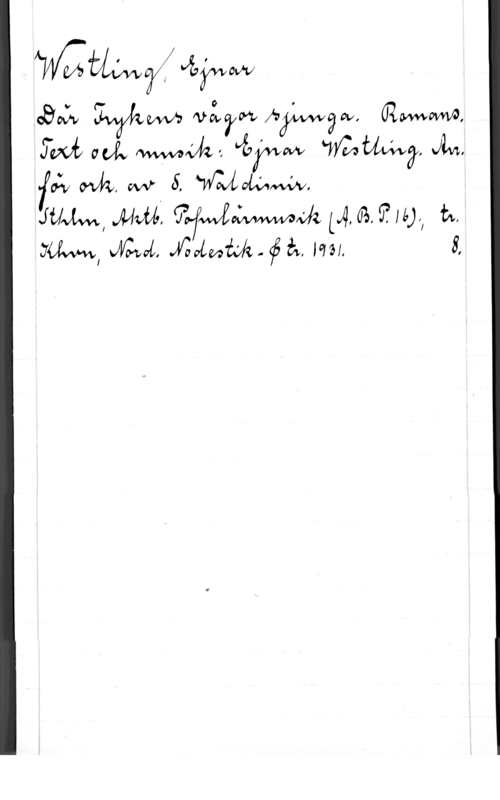 Westling, Ejnar
Där Frykens vågor sjunga. Romans.
Text och musik: Ejnar Westling. Arr.
för ork. av S. Waldimir.
Sthlm, Aktb. Populärmusik (A.B.P. 16); tr.
Khvn, Nord. Nodestik- & tr. 1931. 8.